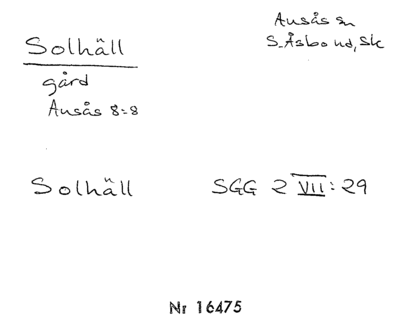 Solhäll
Ausås sn
S. Åsbo hd, Sk
gård
Ausås 8:8
Solhäll SGG 2 VII: 29
Nr 16475